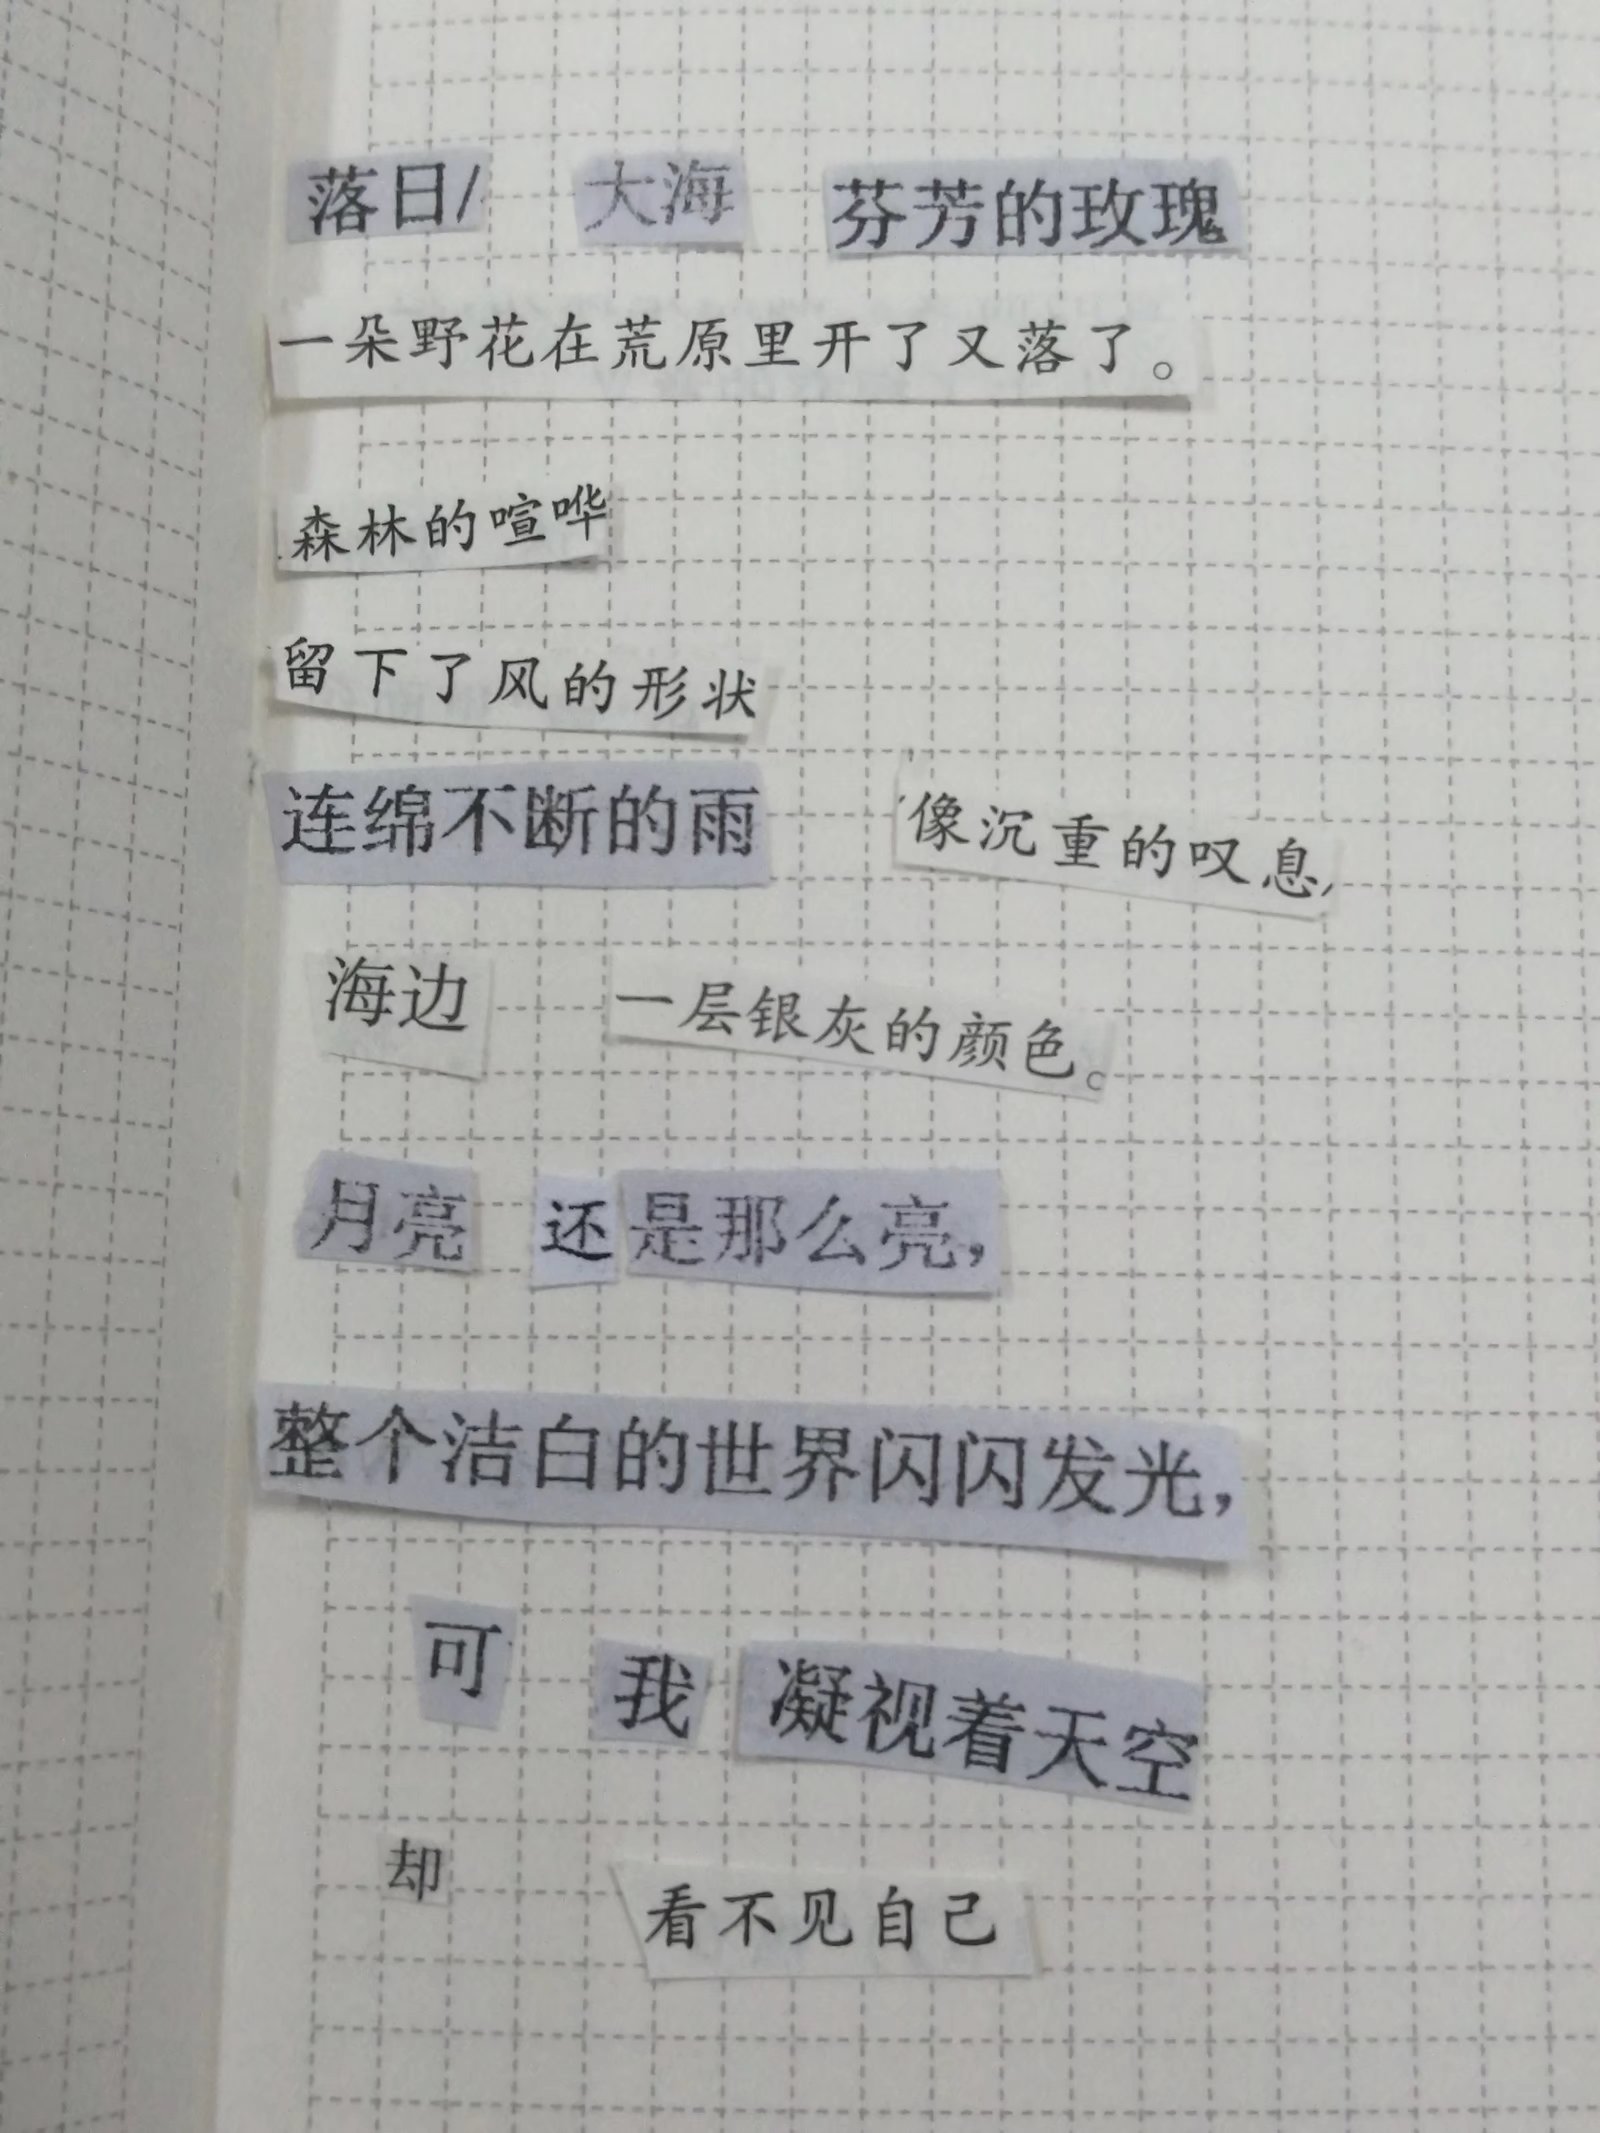 落日/ 大海 芬芳的玫瑰
一朵野花在荒原里开了又落了。
森林的喧哗
留下了风的形状
连绵不断的雨 像沉重的叹息,
海边 一层银灰的颜色。
月亮 还是那么亮,
整个洁白的世界闪闪发光,
可 我 凝视着天空
却 看不见自己